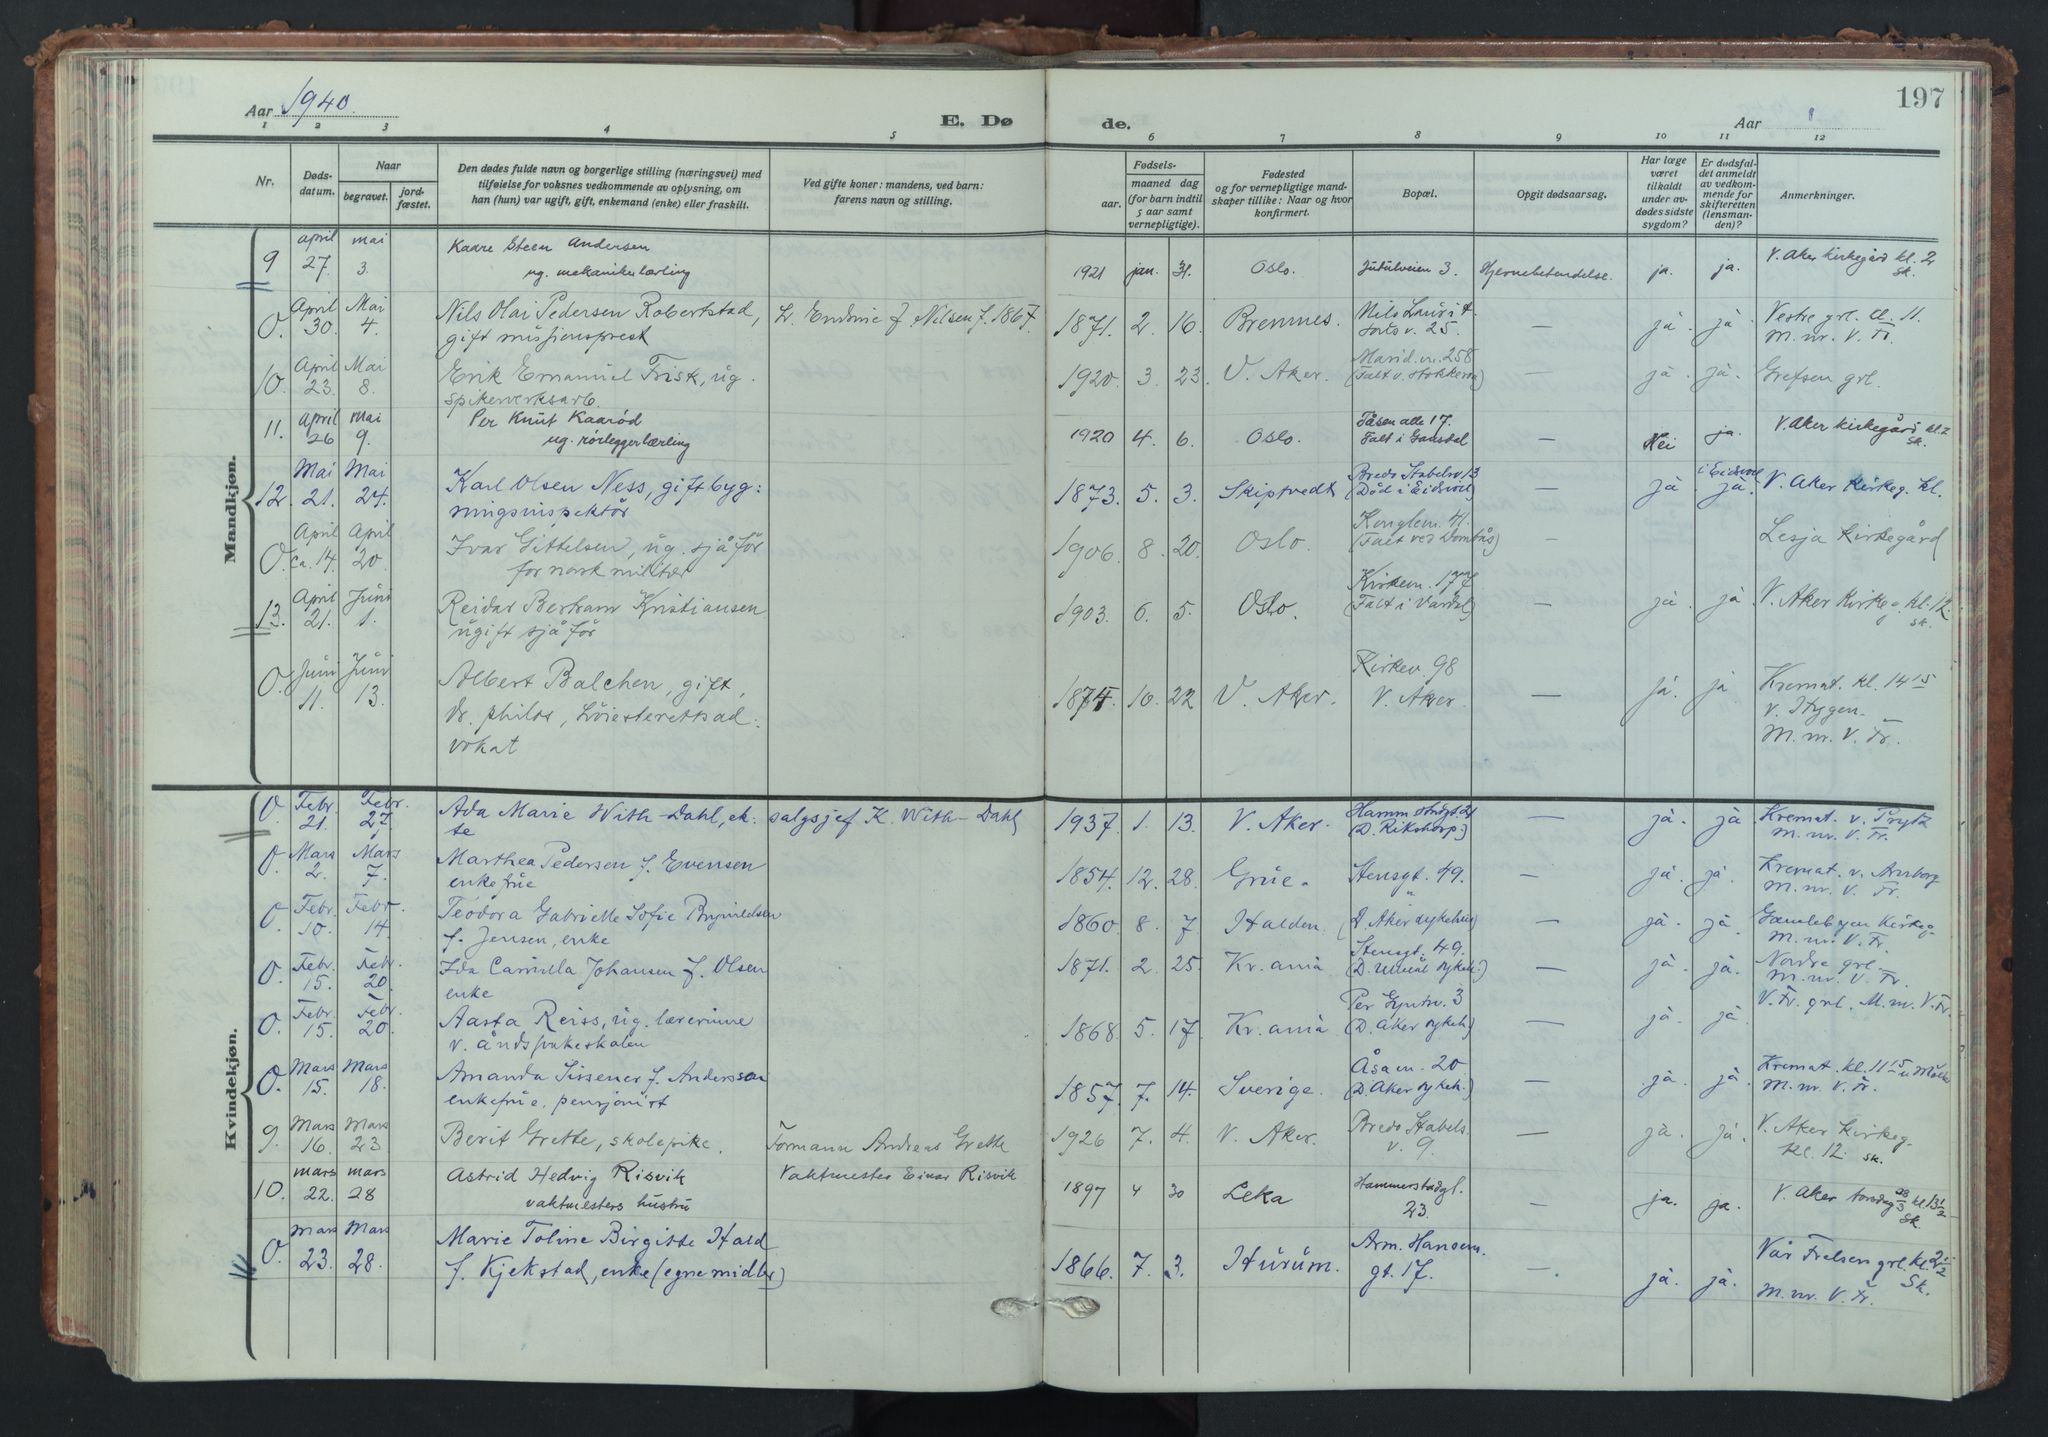 Aar 1940.
E. Døde.
Aar
197
1 2 3 4 5 6 7 8 9 10 11 12
Nr.
Døds-
datum.
Naar
begravet.
jord-
fæstet.
Den dødes fulde navn og borgerlige stilling (næringsvei) med
tilføielse for voksnes vedkommende av oplysning, om
han (hun) var ugift, gift, enkemand (enke) eller fraskilt.
Ved gifte koner: mandens, ved barn:
farens navn og stilling.
Fødsels-
aar.
maaned dag
(for barn indtil
5 aar samt
vernepligtige).
Fødested
og for vernepligtige mand-
skaper tillike: Naar og hvor
konfirmert.
Bopæl.
Opgit dødsaarsag.
Har læge
været
tilkaldt
under av-
dødes sidste
sygdom?
Er dødsfal-
det anmeldt
av vedkom-
mende for
skifteretten
(lensman-
den)?
Anmerkninger.
Mandkjøn.
9 april 27. mai 3. Kaare Steen Andersen
ug. mekanikerlærling
1921 jan. 31. Oslo. Jutulveien 3. Hjernebetendelse. ja. ja. V. Aker kirkegård kl. 2
Sk.
0. April 30. Mai 4. Nils Olai Pedersen Robertstad,
gift misjonsprest
f. Nilsen f. 1867.
1871. 2. 16. Bremnes. Nils Laurit
v. 25. — jà jà Vestre grl. kl. 11.
M. nr. V. Fr.
10. April 23. Mai 8. Erik Emanuel Frisk, ug.
spikerverksarb.
1920. 3. 23. V. Aker. Marid.v. 258
(Falt v. Stokkeråg) — jà jà. Grefsen grl.
11. April 26 mai 9. Per Knut Kaarød
ug. rørleggerlærling
1920 4. 6. Oslo. Tåsen alle 17.
Falt i Gausdal — Nei ja. V. Aker kirkegård kl. 2
Sk.
12. Mai 21. Mai 24. Karl Olsen Ness, gift byg:
ningsinspektør
1873. 5. 3. Skiptvedt Bredo Stabelsv. 13
(Död i Eidsvol) — jà i Eidsvol
jà. V. Aker Kirkeg. kl.
0. April ca. 14. April 20. Ivar Gittelsen, ug. sjåför
for norsk militær
1906. 8. 20. Oslo. Konglev. 41.
(Falt ved Dombås) — Lesja Kirkegård
13. April 21. Juni 1. Reidar Bertram Kristiansen
ugift sjåför
1903. 6. 5. Oslo. Kirkev. 177
(Falt i Vardal) — jà. jà V. Aker Kirkeg. kl. 12.
Sk.
0. Juni 11. Juni 13. Albert Balchen, gift,
dr. philos, höiesteretsad:
vokat
1874. 10. 22 V. Aker. Kirkev. 98
V. Aker. — jà. jà Kremat. kl. 14 15
v. Hygen.
M. nr. V. Fr.
Kvindekjøn.
0. Febr. 21. Febr. 27. Ada Marie With-Dahl, ek-
te
salgsjef K. With-Dahl
1937. 1. 13. V. Aker.
(D. Rikshosp.) — jà. jà Kremat. v. Prytz
M. nr. V. Fr.
0. Mars 2. Mars 7. Marthea Pedersen f. Evensen
enkefrue
1854. 12. 28. Grue. Stensgt. 49. — jà. jà. Kremat. v. Arnborg
M. nr. V. Fr.
0. Febr. 10. Febr. 14. Teodora Gabrielle Sofie Brynildsen
f. Jensen, enke
1860. 8. 7 Halden. "
(D. Aker sykehus) — jà. jà. Gamlebyen Kirkeg.
M. nr. V. Fr.
0. Febr. 15. Febr. 20. Ida Camilla Johansen f. Olsen
enke
1871. 2. 25. Kr.ania Stensgt. 49.
(D. Ullevål sykeh.) — jà. jà. Nordre grl.
M. nr. V. Fr.
0. Febr. 15. Febr. 20. Aasta Reiss, ug. lærerinne
v. åndsvakeskolen
1868. 5. 17. Kr.ania Per Gyntv. 3
(D. Aker sykeh.) — jà. jà. V. Fr. grl. M. nr. V. Fr.
0. Mars 15. Mars 18. Amanda Sissener f. Andersson
enkefrue. pensjonist
1857. 7. 14. Sverige. Åsav. 20
(D. Aker sykeh.) — jà. jà. Kremat. kl. 11 15
M. nr. V. Fr.
9. Mars 16. Mars 23 Berit Grette, skolepike. Formann Andreas Grette
1926 7. 4. V. Aker. Bredo Stabels
v. 9. — jà. jà. V. Aker Kirkeg.
kl. 12. Sk.
10. mars 22. mars 28 Astrid Hedvig Risvik
vaktmesters hustru
Vaktmester Einar Risvik
1897 4 30 Leka Hammerstadgt.
23. ja. ja. V. Aker torsdag 28/3 kl. 13 1/2
Sk.
0. Mars 23. Mars 28. Marie Toline Birgitte Hald
f. Kjekstad, enke (egne midler)
1866. 7. 3. Hurum. Arm. Hansens
gt. 17. — jà. jà. Vår Frelsers grl. kl. 2 1/2
Sk.
M. nr. V. Fr.